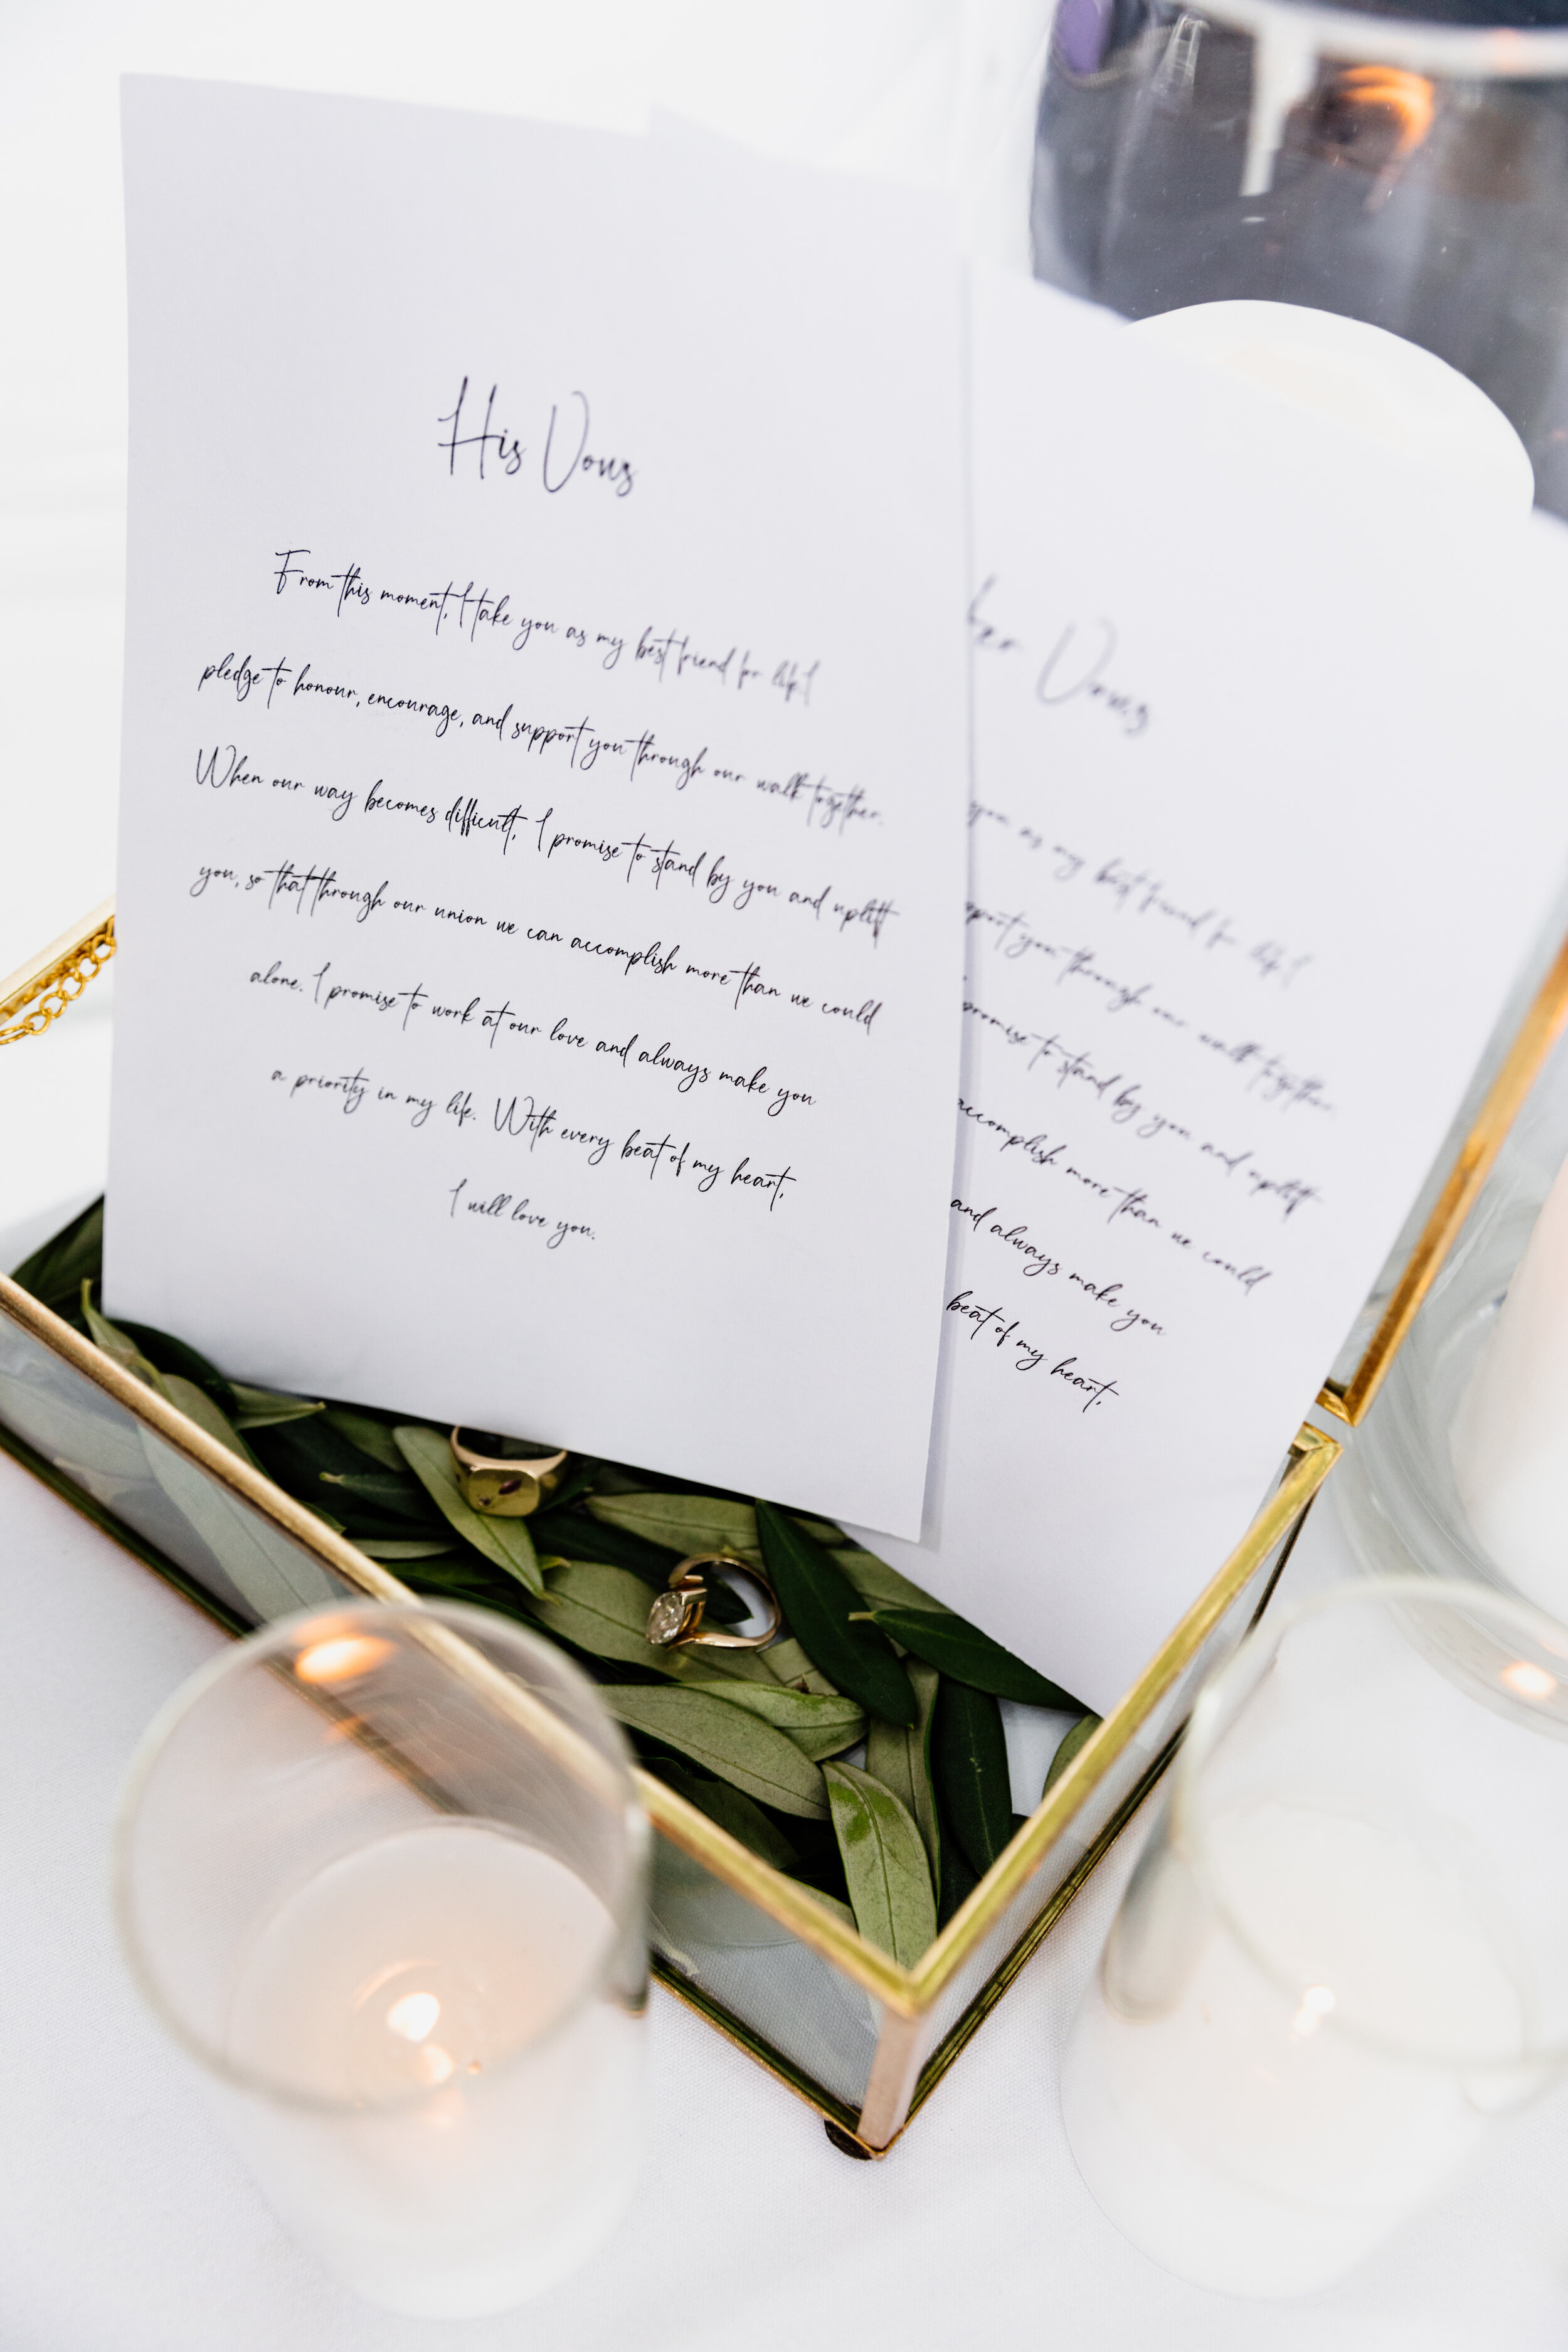 His Vows
From this moment, I take you as my best friend for life. I
pledge to honour, encourage, and support you through our walk together.
When our way becomes difficult, I promise to stand by you and uplift
you, so that through our union we can accomplish more than we could
alone. I promise to work at our love and always make you
a priority in my life. With every beat of my heart,
I will love you.
Her Vows
you as my best friend for life. I
you through our walk together.
promise to stand by you and uplift
accomplish more than we could
and always make you
beat of my heart,